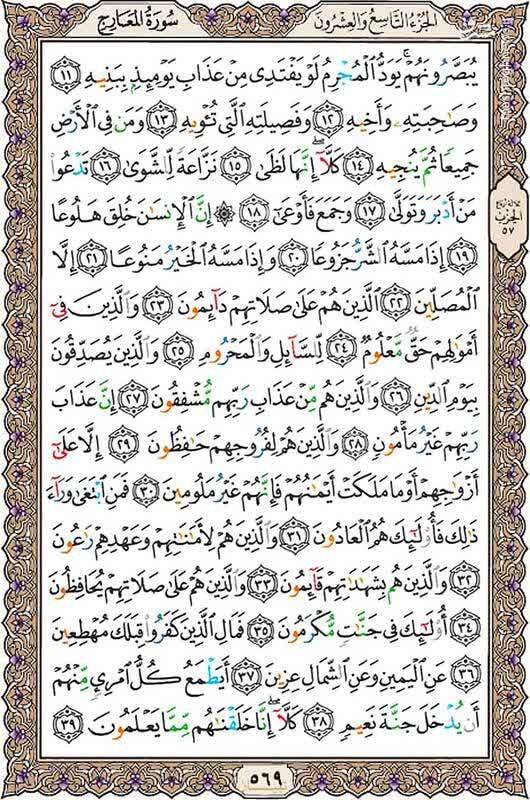 الجزء التاسع والعشرون
سورة المعارج
يُبَصَّرُونَهُمْ ۚ يَوَدُّ ٱلْمُجْرِمُ لَوْ يَفْتَدِى مِنْ عَذَابِ يَوْمِئِذٍۭ بِبَنِيهِ ١١
وَصَٰحِبَتِهِۦ وَأَخِيهِ ١٢ وَفَصِيلَتِهِ ٱلَّتِى تُـْٔوِيهِ ١٣ وَمَن فِى ٱلْأَرْضِ
جَمِيعًا ثُمَّ يُنجِيهِ ١٤ كَلَّآ ۖ إِنَّهَا لَظَىٰ ١٥ نَزَّاعَةً لِّلشَّوَىٰ ١٦ تَدْعُوا۟
مَنْ أَدْبَرَ وَتَوَلَّىٰ ١٧ وَجَمَعَ فَأَوْعَىٰٓ ١٨ ۞ إِنَّ ٱلْإِنسَٰنَ خُلِقَ هَلُوعًا
١٩ إِذَا مَسَّهُ ٱلشَّرُّ جَزُوعًا ٢٠ وَإِذَا مَسَّهُ ٱلْخَيْرُ مَنُوعًا ٢١ إِلَّا
ٱلْمُصَلِّينَ ٢٢ ٱلَّذِينَ هُمْ عَلَىٰ صَلَاتِهِمْ دَآئِمُونَ ٢٣ وَٱلَّذِينَ فِىٓ
أَمْوَٰلِهِمْ حَقٌّ مَّعْلُومٌ ٢٤ لِّلسَّآئِلِ وَٱلْمَحْرُومِ ٢٥ وَٱلَّذِينَ يُصَدِّقُونَ
بِيَوْمِ ٱلدِّينِ ٢٦ وَٱلَّذِينَ هُم مِّنْ عَذَابِ رَبِّهِم مُّشْفِقُونَ ٢٧ إِنَّ عَذَابَ
رَبِّهِمْ غَيْرُ مَأْمُونٍ ٢٨ وَٱلَّذِينَ هُمْ لِفُرُوجِهِمْ حَٰفِظُونَ ٢٩ إِلَّا عَلَىٰٓ
أَزْوَٰجِهِمْ أَوْ مَا مَلَكَتْ أَيْمَٰنُهُمْ فَإِنَّهُمْ غَيْرُ مَلُومِينَ ٣٠ فَمَنِ ٱبْتَغَىٰ وَرَآءَ
ذَٰلِكَ فَأُو۟لَٰٓئِكَ هُمُ ٱلْعَادُونَ ٣١ وَٱلَّذِينَ هُمْ لِأَمَٰنَٰتِهِمْ وَعَهْدِهِمْ رَٰعُونَ
٣٢ وَٱلَّذِينَ هُم بِشَهَٰدَٰتِهِمْ قَآئِمُونَ ٣٣ وَٱلَّذِينَ هُمْ عَلَىٰ صَلَاتِهِمْ يُحَافِظُونَ
٣٤ أُو۟لَٰٓئِكَ فِى جَنَّٰتٍ مُّكْرَمُونَ ٣٥ فَمَالِ ٱلَّذِينَ كَفَرُوا۟ قِبَلَكَ مُهْطِعِينَ
٣٦ عَنِ ٱلْيَمِينِ وَعَنِ ٱلشِّمَالِ عِزِينَ ٣٧ أَيَطْمَعُ كُلُّ ٱمْرِئٍ مِّنْهُمْ
أَن يُدْخَلَ جَنَّةَ نَعِيمٍ ٣٨ كَلَّآ ۖ إِنَّا خَلَقْنَٰهُم مِّمَّا يَعْلَمُونَ ٣٩
ثلاثة أرباع
الحزب
٥٧
٥٦٩